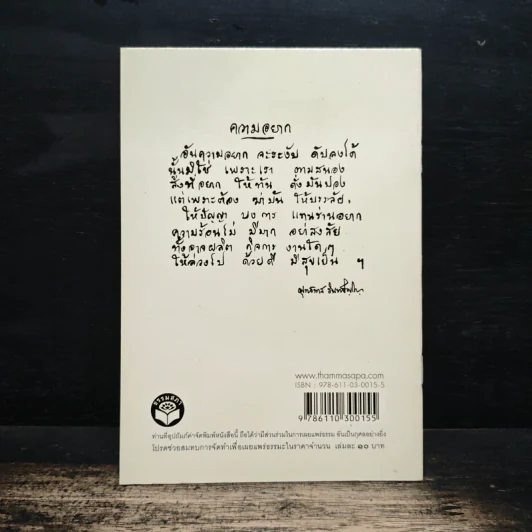 ความอยาก
อันความอยาก จะระงับ ดับลงได้
นั้นมิใช่ เพราะเรา ตามสนอง
สิ่งที่อยาก ให้ทัน ดั่งมันปอง
แต่เพราะต้อง ฆ่ามัน ให้บรรลัย,
ให้ปัญญา บงการ แทนร่านอยาก
ความร้อนไม่ มีมาก อย่าสงสัย
ทั้งอาจผลิต กิจการ งานใดๆ
ให้ล่วงไป ด้วยดี มีสุขเย็น ฯ
พุทธทาส อินทปัญโญ
www.thammasapa.com
ISBN : 978-611-03-0015-5
9 786110 300155
ธรรมสภา
ท่านที่อุปถัมภ์ค่าจัดพิมพ์หนังสือนี้ ถือได้ว่ามีส่วนร่วมในการเผยแพร่ธรรม อันเป็นกุศลอย่างยิ่ง
โปรดช่วยสมทบการจัดทำเพื่อเผยแพร่ธรรมะในราคาจำนวน เล่มละ ๑๐ บาท